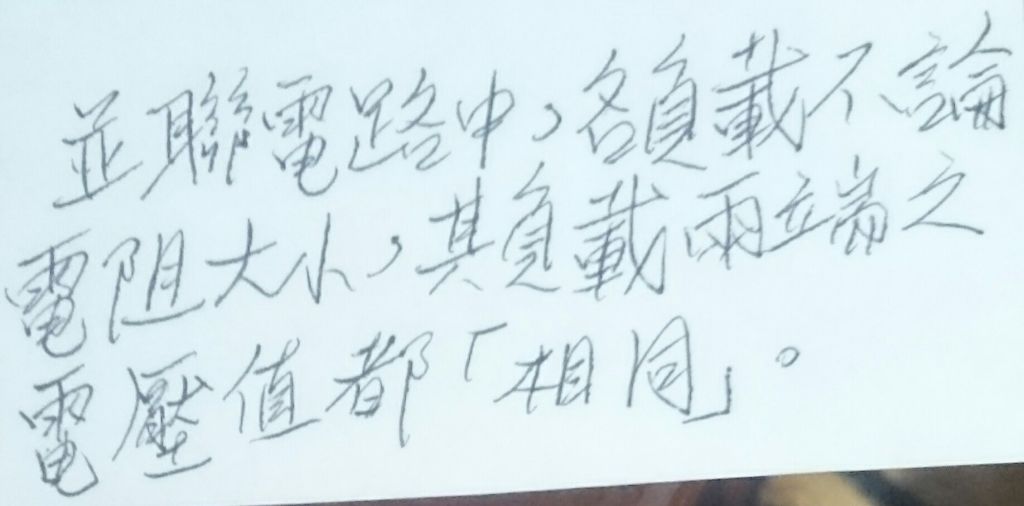 並聯電路中，各負載不論
電阻大小，其負載兩端之
電壓值都「相同」。